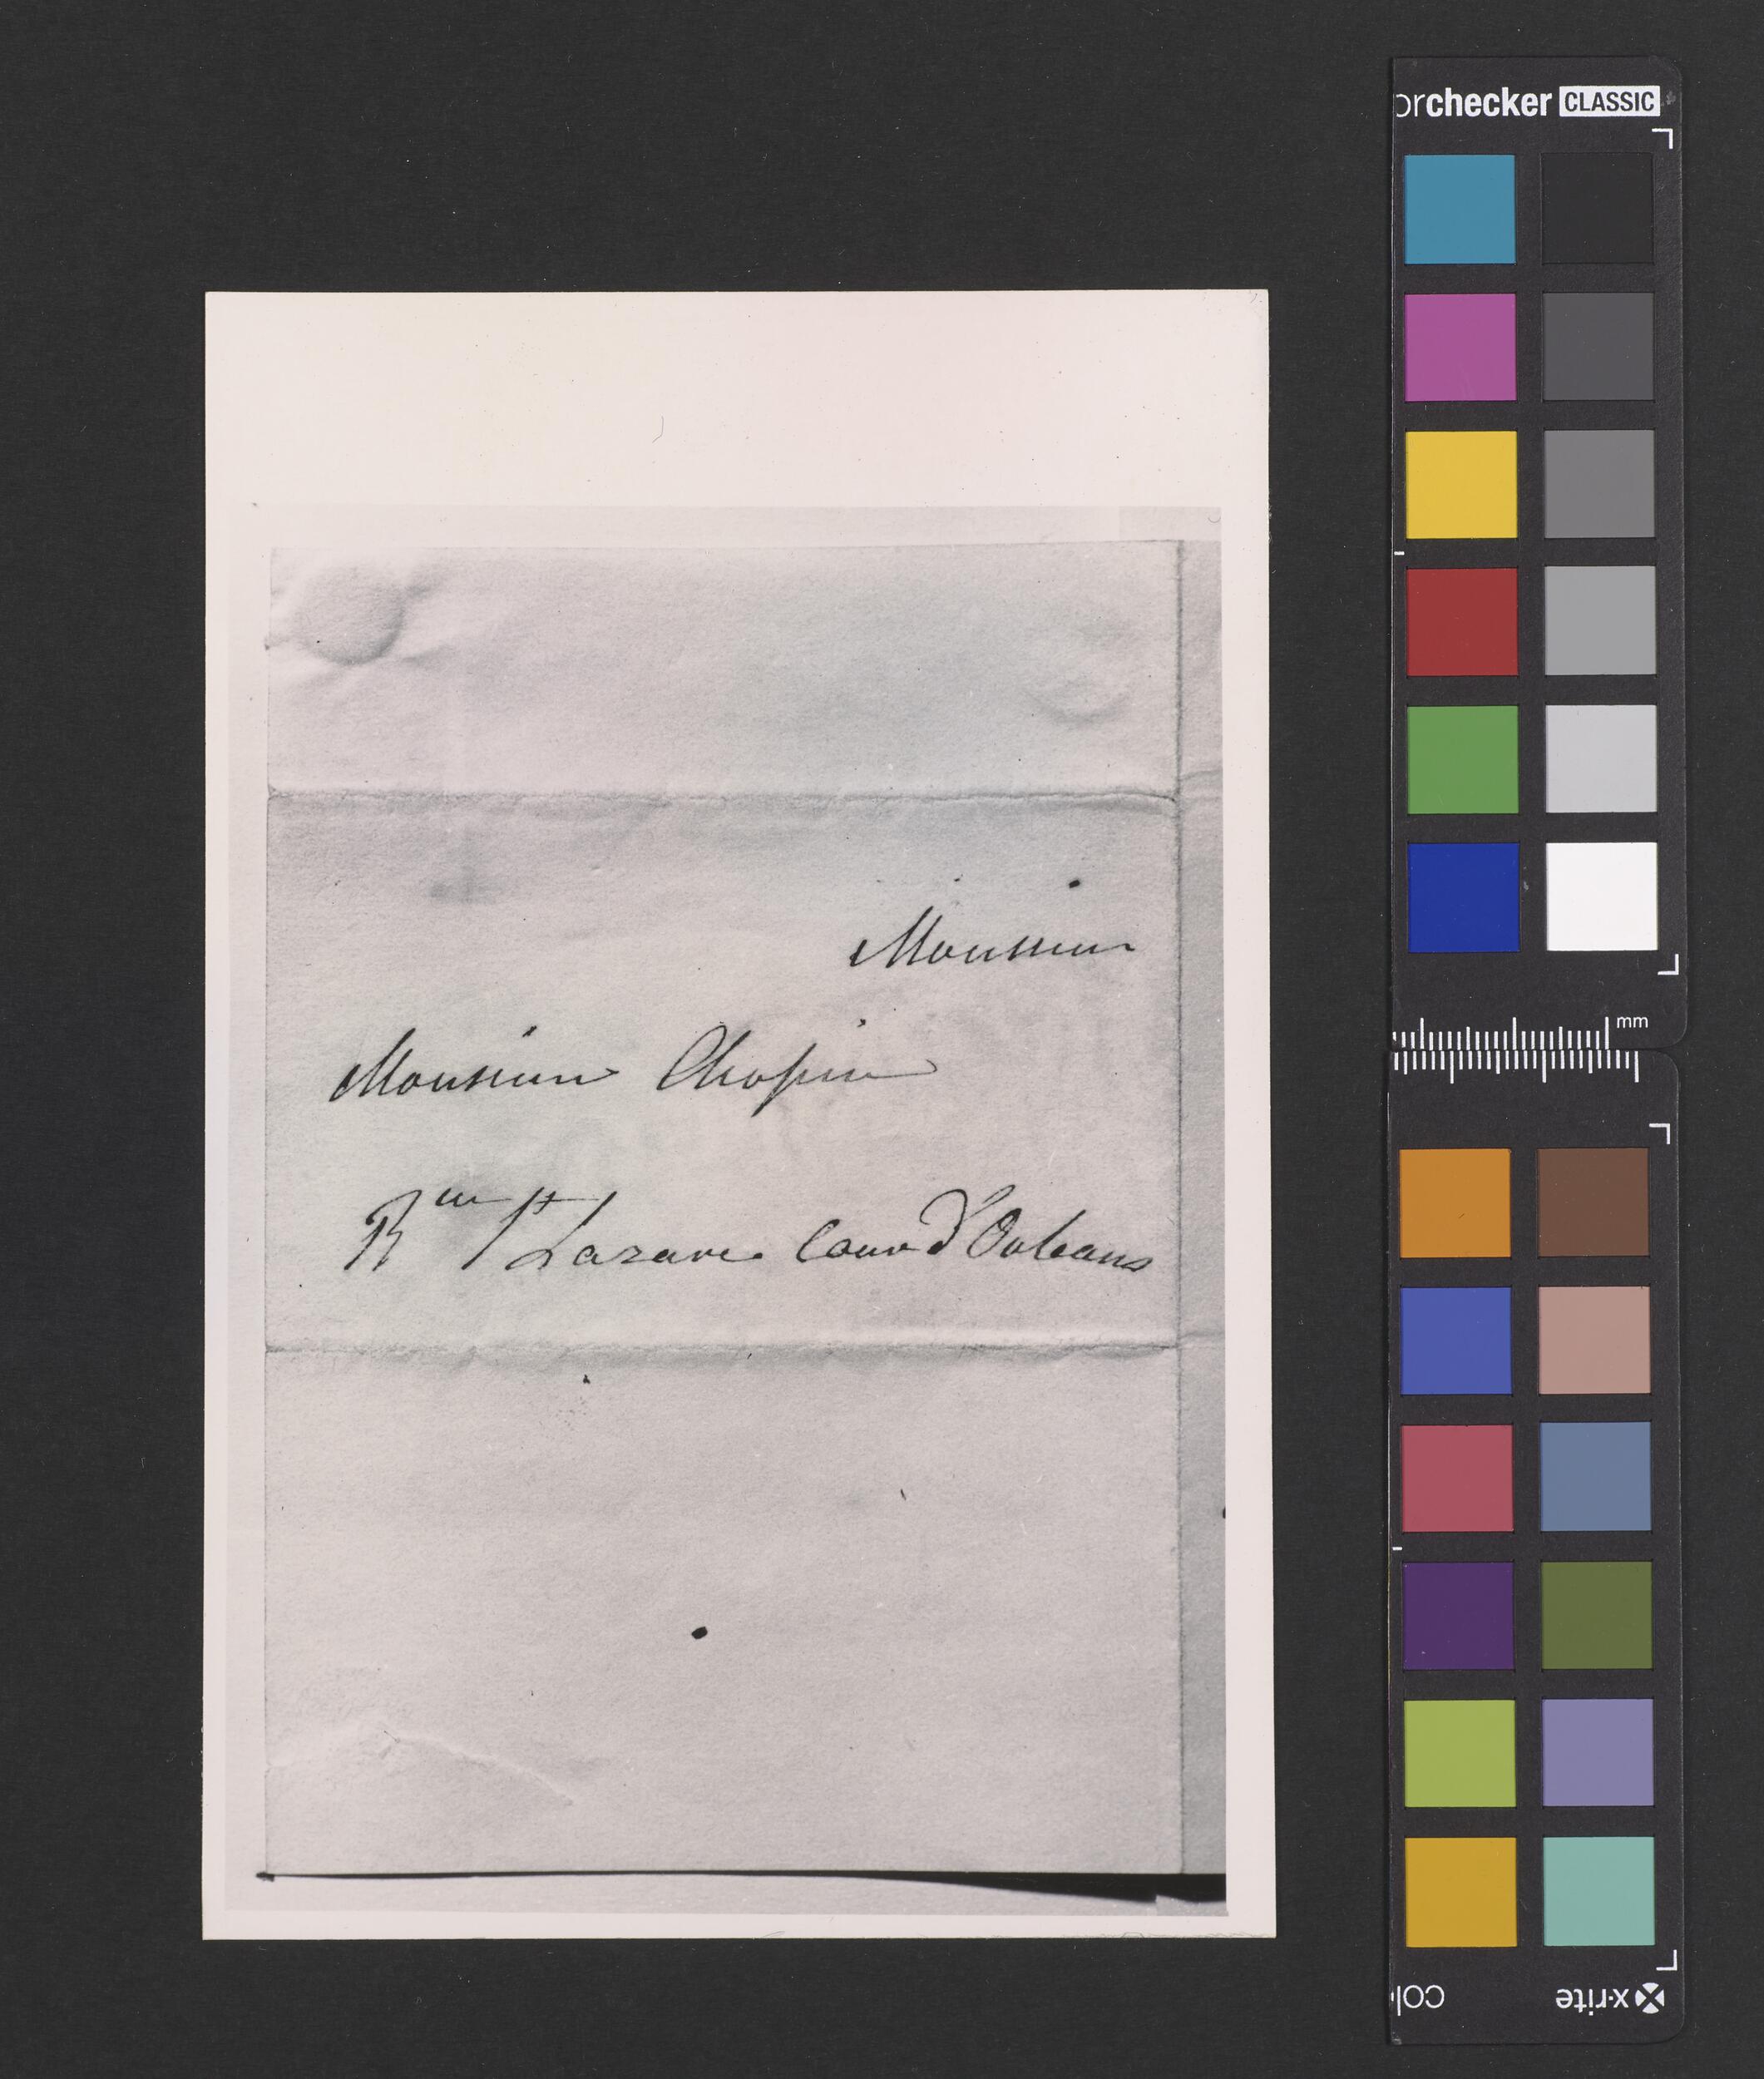 orchecker CLASSIC
Monsieur
Monsieur Chopin
Rue St Lazare. Cour d'Orleans
mm
x-rite
col